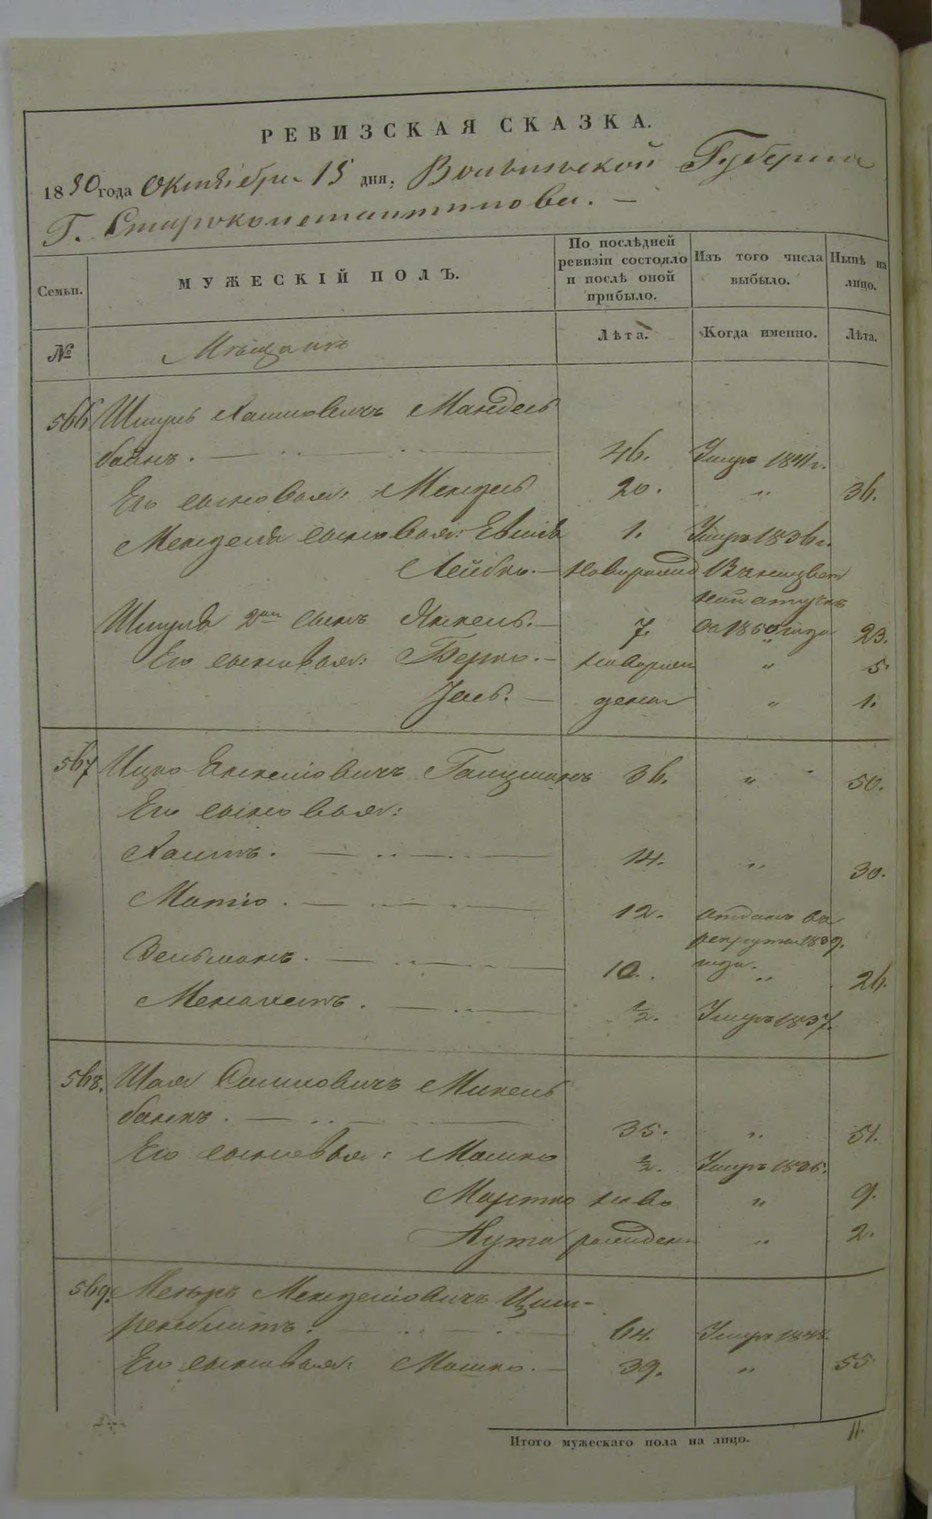 РЕВИЗСКАЯ СКАЗКА.
1850 года Октября 15 дня, Волынской Губернии
Г. Староконстантинова. —
Семьи. МУЖЕСКІЙ ПОЛЪ. По послѣдней ревизіи состояло и послѣ оной прибыло. Изъ того числа выбыло. Нынѣ на лицо.
№ Мещане Лѣта. Когда именно. Лѣта.
566 Шмуль Хаимовичъ Мандель
баймъ. — 46. Умеръ 1841 г.
Его сыновья: Мендель 20. " 36.
Менделя сыновья: 1. Умеръ 1836 г.
Лейбко. — новорожд
Шмуля 2й сынъ Янкель. — 7. 1850 года 23.
Его сыновья: Берко. — новорож " 5.
— дены " 1.
567 Ицко Янкелiовичъ Гольцманъ 36. " 50.
Его сыновья:
Хаимъ. — 14. " 30.
Матiо. — 12. отданъ въ
рекруты 1839.
года.
Вольманъ. — 10. " 26.
Менахемъ. — ½. Умеръ 1837.
568. Шая Миhель
банкъ. — 35. " 51.
Его сыновья: Мошко ½. Умеръ 1835.
Мортко ново " 9.
Нута рожденн " 2.
569. Мееръ Менделiовичъ Цим-
64. Умеръ
Его сыновья: Мошко. — 39. " 55.
Итого мужескаго пола на лицо. 11.